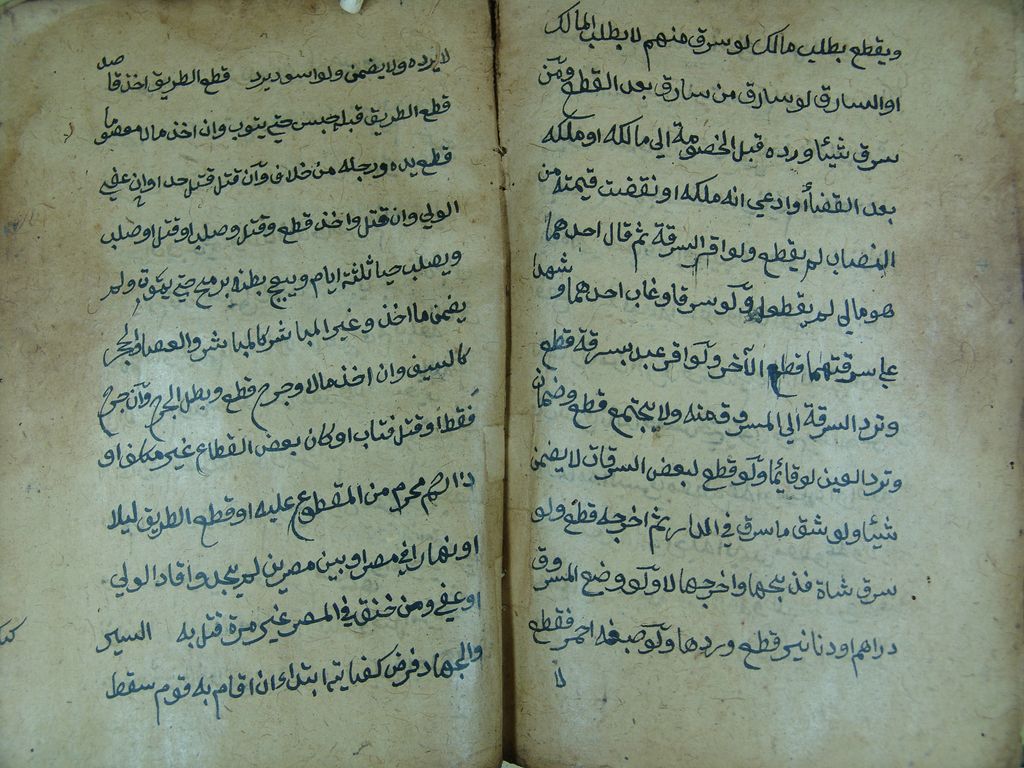 ويقطع بطلب مالك لو سرق منهم لا بطلب المالك
او السارق لو سارق من سارق بعد القطع ومن
سرق شيئا ورده قبل الخصومة الي مالكه او ملكه
بعد القضاء او ادعي انه ملكه او نقصت قيمته من
النصاب لم يقطع ولو اقرا بسرقة ثم قال احدهما
هو مالي لم يقطعا ولو سرقا وغاب احدهما وشهدا
علي سرقتهما قطع الآخر ولو اقر عبد بسرقة قطع
وترد السرقة الي المسروق منه ولا يجتمع قطع وضمان
وترد العين لو قائما ولو قطع لبعض السرقات لا يضمن
شيئا ولو شق ما سرق في الدار ثم اخرجه قطع ولو
سرق شاة فذبحها واخرجها لا ولو وضع المسروق
دراهم او دنانير قطع وردها ولو صبغه احمر فقطع
لا
لا يرده ولا يضمن ولو اسود يرد قطع الطريق اخذ قاصد
قطع الطريق قبله حبس حتي يتوب وان اخذ مالا معصوما
قطع يده ورجله من خلاف وان قتل قتل حدا وان عفي
الولي وان قتل واخذ قطع وقتل وصلب او قتل او صلب
ويصلب حيا ثلثة ايام ويبعج بطنه برمح حتي يموت ولم
يضمن ما اخذ وغير المباشر كالمباشر والعصا والحجر
كالسيف وان اخذ مالا وجرح قطع وبطل الجرح وان جرح
فقط او قتل فتاب او كان بعض القطاع غير مكلف او
ذا رحم محرم من المقطوع عليه او قطع الطريق ليلا
او نهارا في مصر او بين مصرين لم يحد واقاد الولي
او عفي ومن خنق في المصر غير مرة قتل به السير
والجهاد فرض كفاية ابتداء ان اقام به قوم سقط